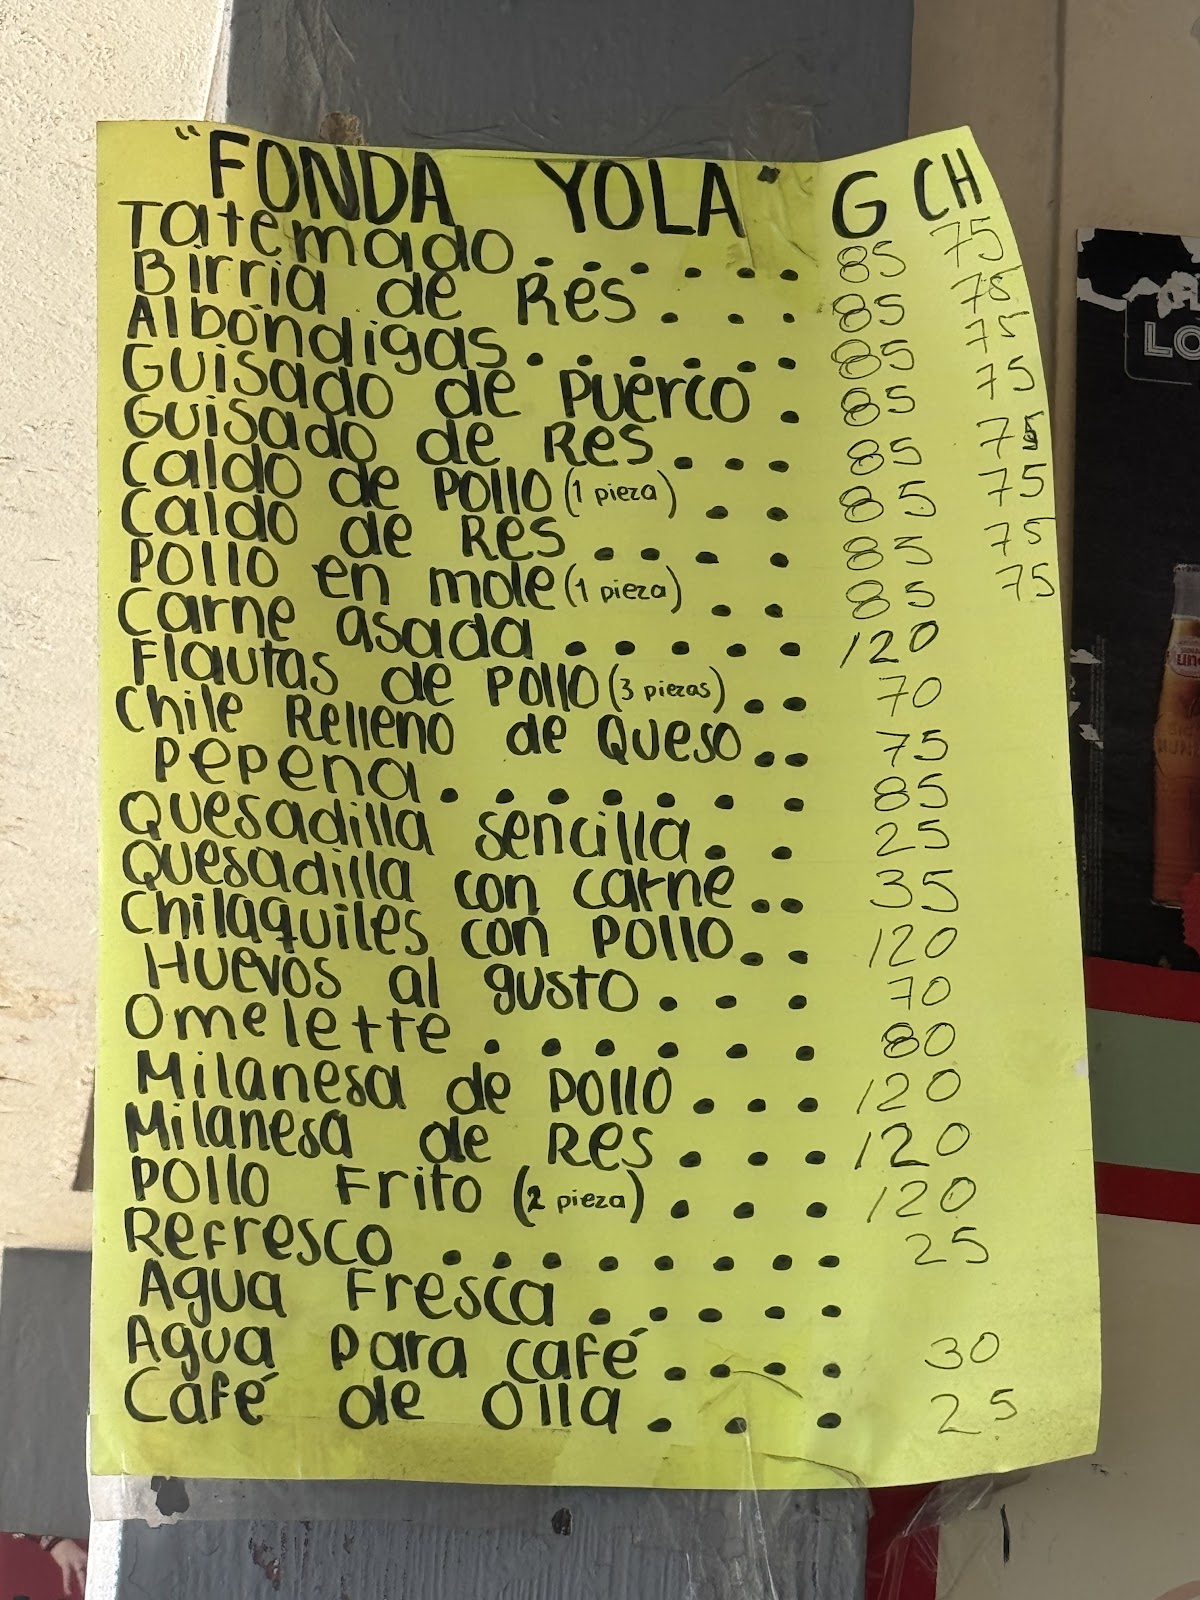 "FONDA YOLA" G CH
Tatemado....... 85 75
Birria de Res... 85 75
Albóndigas...... 85 75
Guisado de Puerco. 85 75
Guisado de Res... 85 75
Caldo de Pollo (1 pieza).. 85 75
Caldo de Res.... 85 75
Pollo en mole (1 pieza).. 85 75
Carne asada..... 120
Flautas de Pollo (3 piezas).. 70
Chile Relleno de Queso.. 75
Pepena....... 85
Quesadilla sencilla.. 25
Quesadilla con carne.. 35
Chilaquiles con Pollo.. 120
Huevos al gusto... 70
Omelette...... 80
Milanesa de Pollo... 120
Milanesa de Res... 120
Pollo Frito (2 pieza)... 120
Refresco....... 25
Agua Fresca.....
Agua para café.... 30
Café de Olla... 25
LO